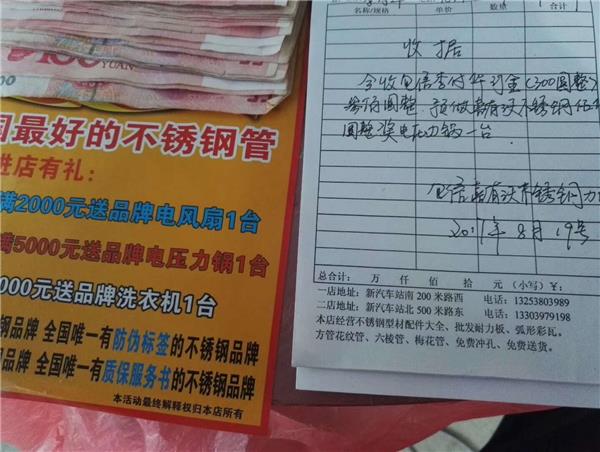 100
YUAN
国最好的不锈钢管
进店有礼：
满2000元送品牌电风扇1台
满5000元送品牌电压力锅1台
000元送品牌洗衣机1台
钢品牌 全国唯一有防伪标签的不锈钢品牌
品牌 全国唯一有质保服务书的不锈钢品牌
本活动最终解释权归本店所有
名称/规格 单价 数量 合计
收据
今收
现金(300圆整)
圆整
不锈钢
圆整奖电压力锅一台.
8月19号
总合计： 万 仟 佰 拾 元 (小写)￥:
一店地址：新汽车站南 200 米路西 电话：13253803989
二店地址：新汽车站北 500 米路东 电话：13303979198
本店经营不锈钢型材配件大全、批发耐力板、弧形彩瓦。
方管花纹管、六棱管、梅花管、免费冲孔、免费送货。